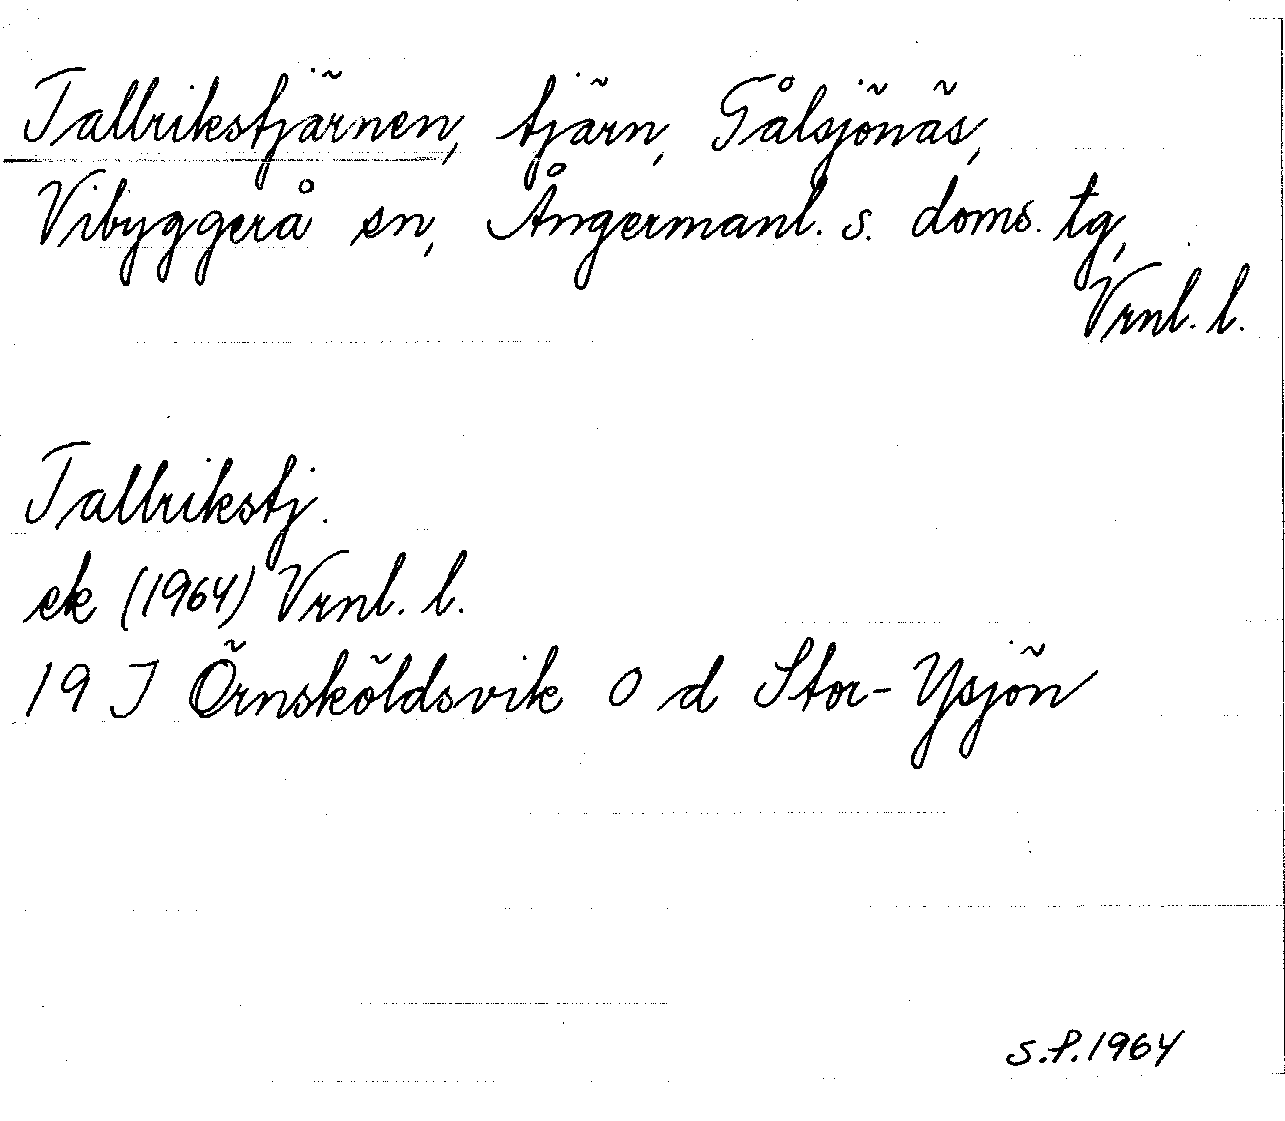 Tallrikstjärnen, tjärn, Gålsjönäs,
Vibyggerå sn, Ångermanl. s. doms. tg,
Vrnl. l.
Tallrikstj.
ek (1964) Vrnl. l.
19 J Örnsköldsvik O d Stor-Ysjön
S.P. 1964